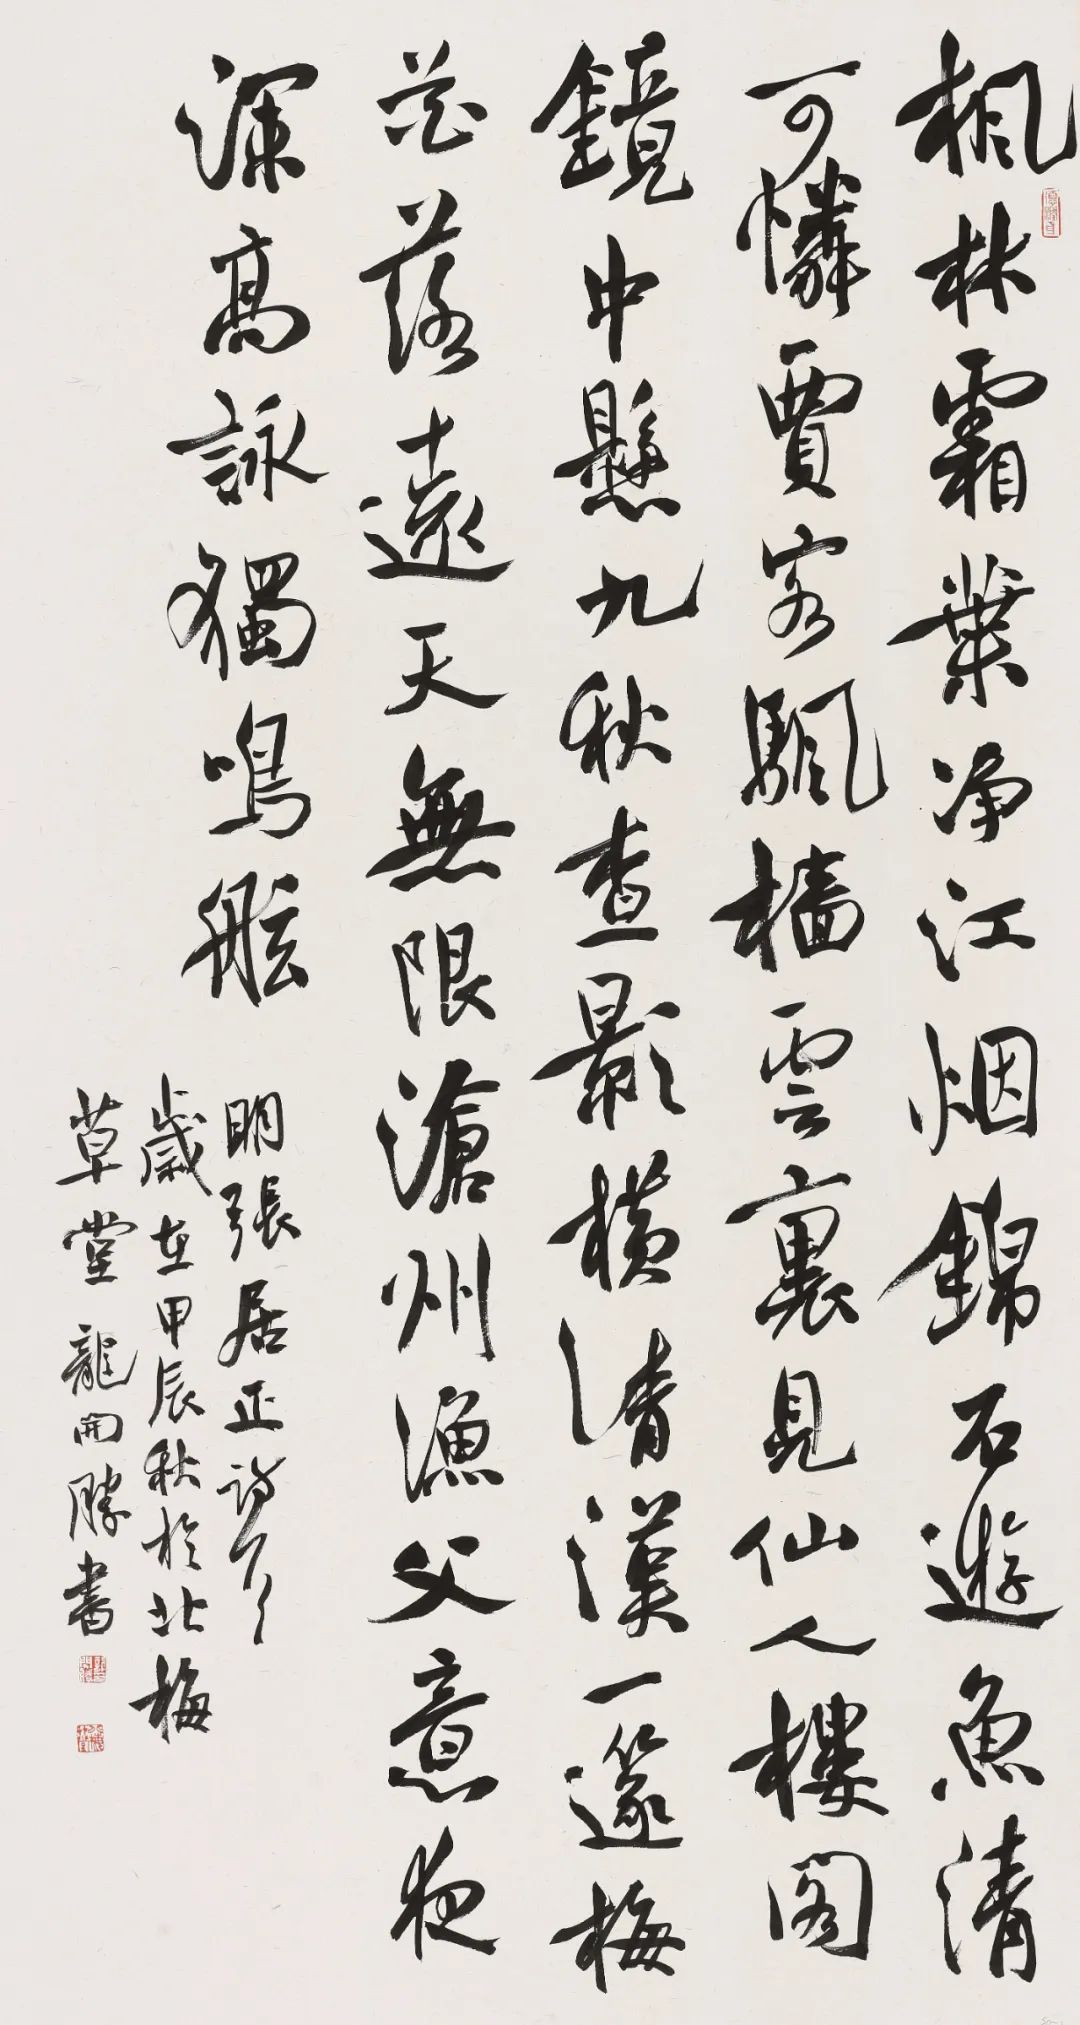 楓林霜葉净江烟錦石遊魚清
可憐賈客颿檣雲裏見仙人樓閣
鏡中懸九秋查影橫清漢一篴梅
花落遠天無限滄州漁父意夜
深高詠獨鳴舷
明張居正詩
歲在甲辰秋於北梅
草堂龍開勝書